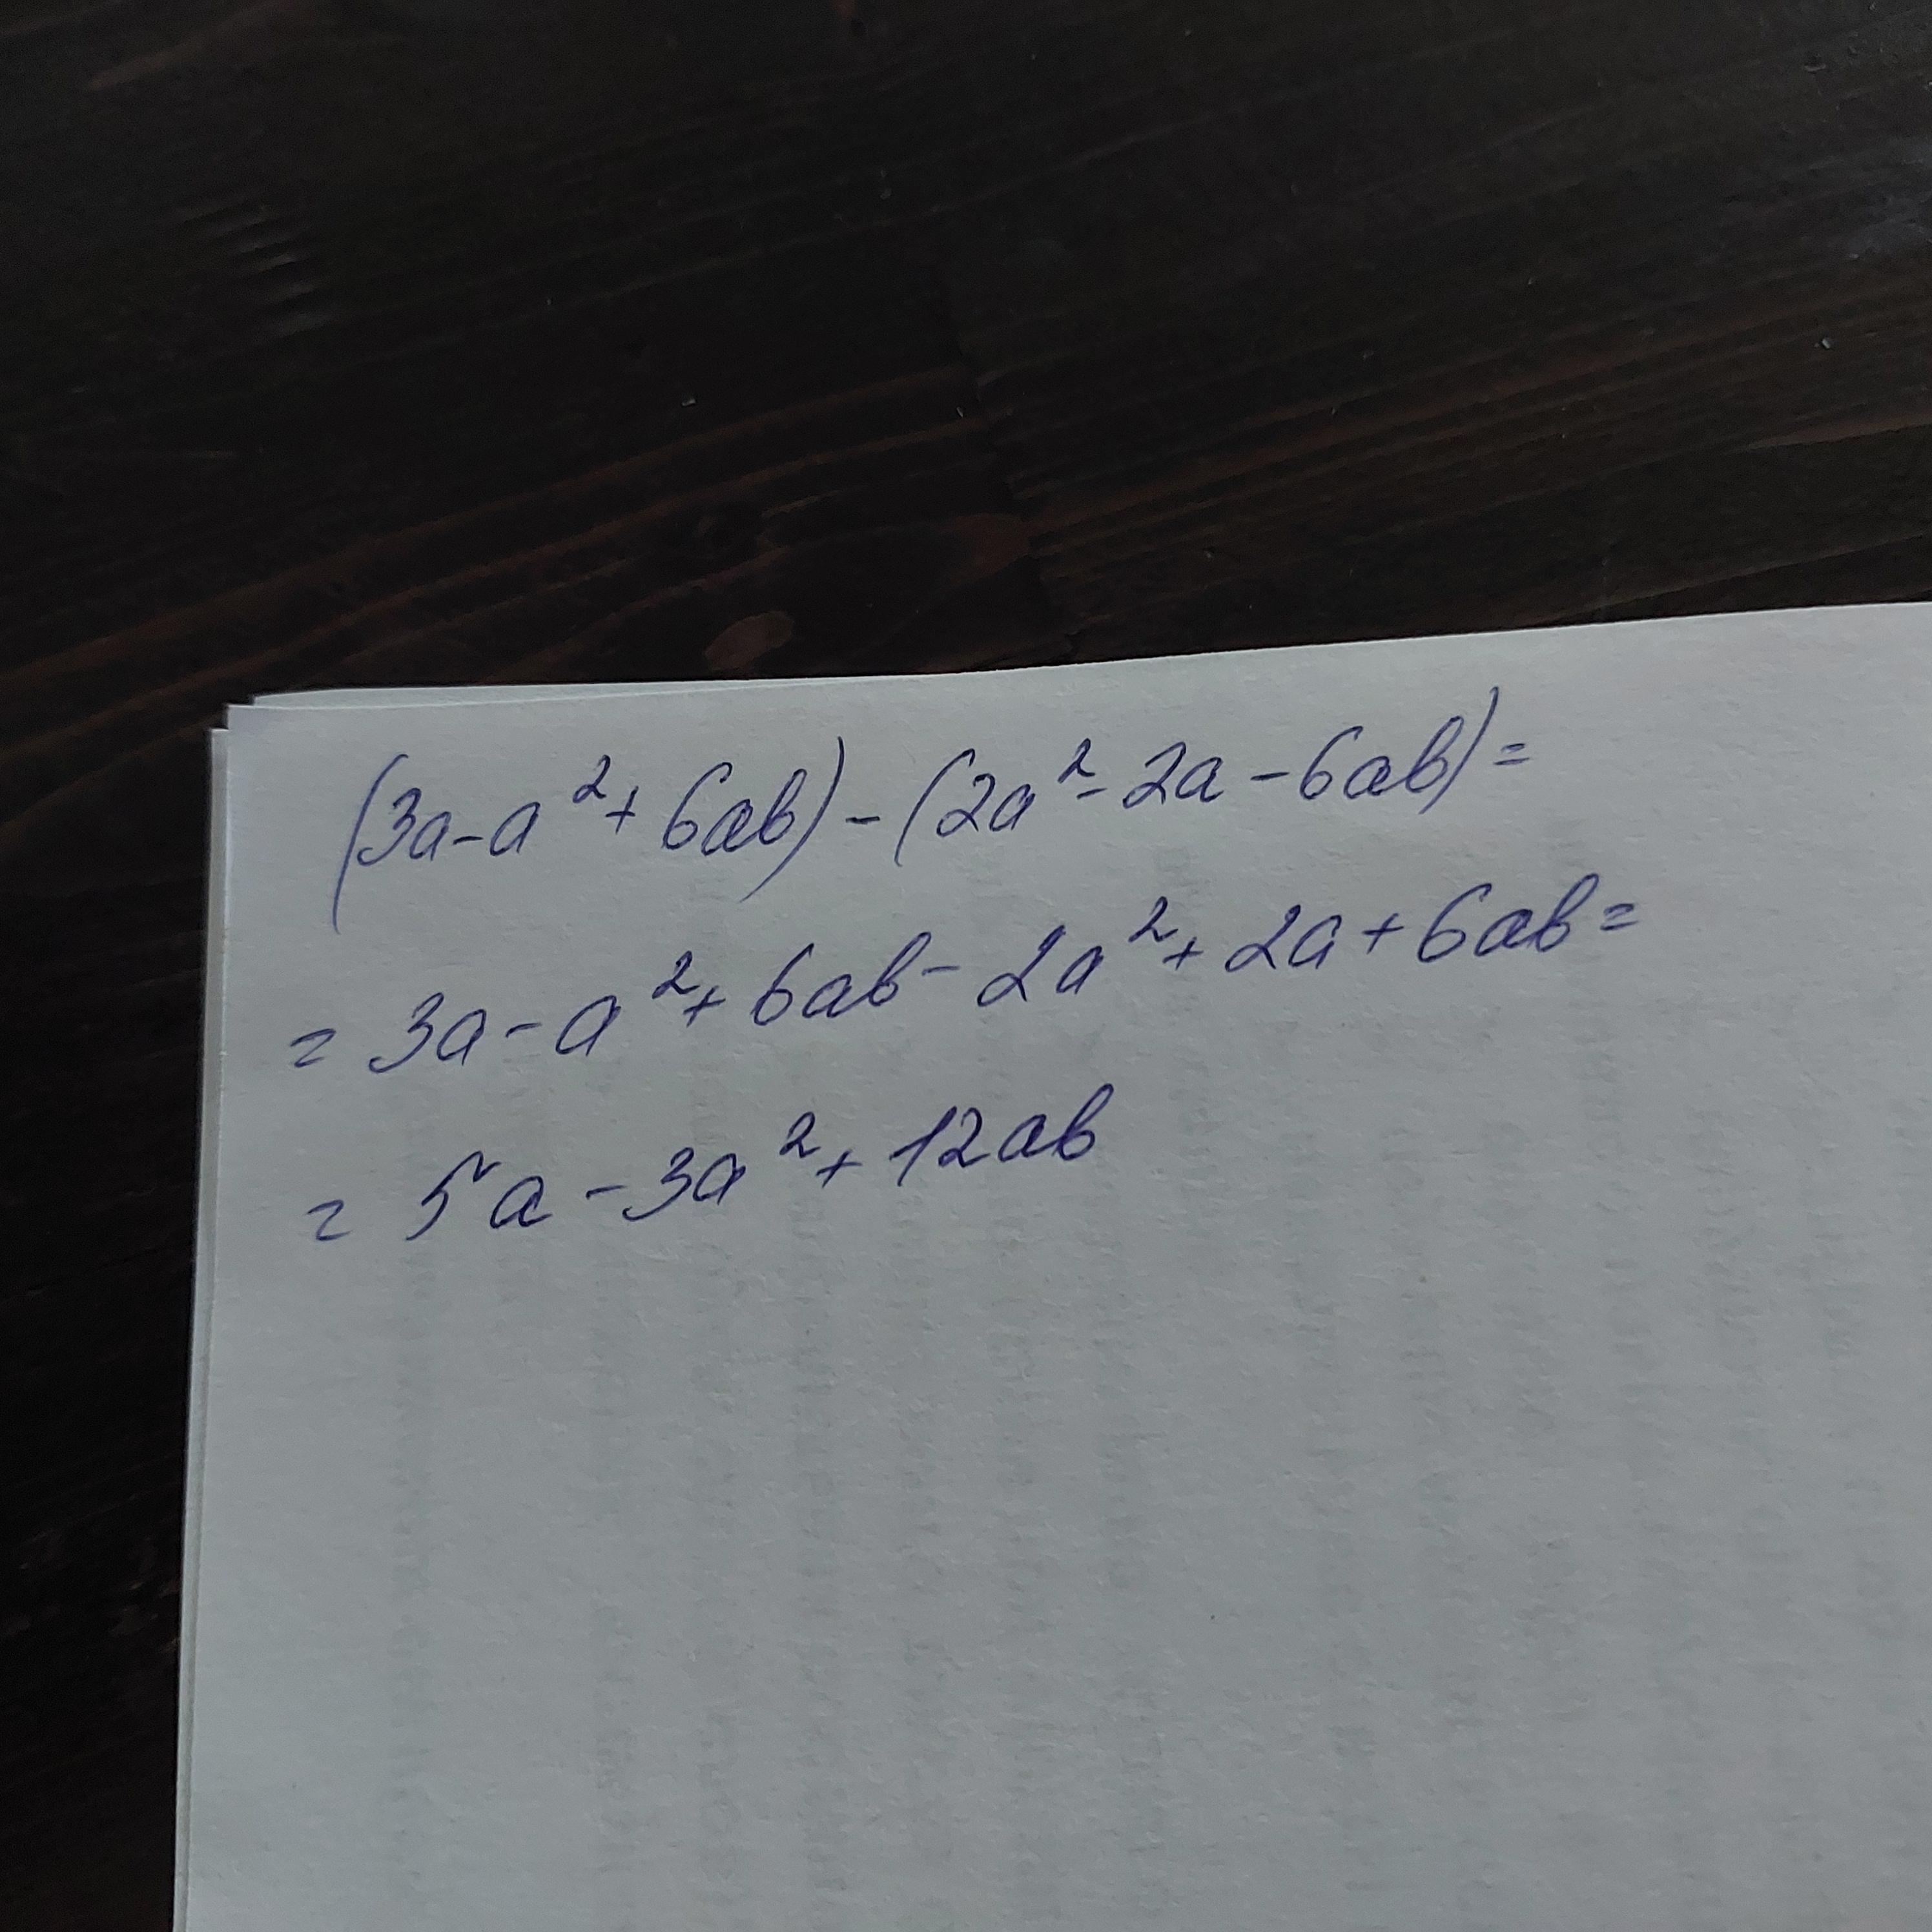 (3a-a²+6ab)-(2a²-2a-6ab)=
=3a-a²+6ab-2a²+2a+6ab=
=5a-3a²+12ab